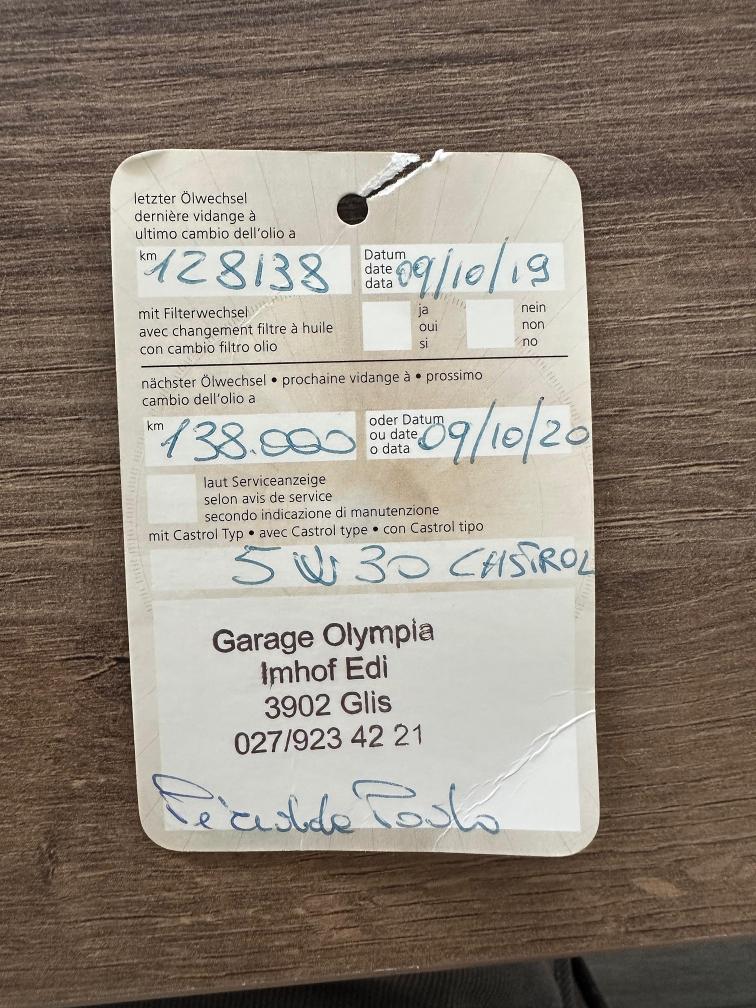 letzter Ölwechsel
dernière vidange à
ultimo cambio dell'olio a
km 128138
Datum
date 09/10/19
data
mit Filterwechsel
avec changement filtre à huile
con cambio filtro olio
ja
oui
si
nein
non
no
nächster Ölwechsel • prochaine vidange à • prossimo
cambio dell'olio a
km 138.000
oder Datum
ou date 09/10/20
o data
laut Serviceanzeige
selon avis de service
secondo indicazione di manutenzione
mit Castrol Typ • avec Castrol type • con Castrol tipo
5 W 30 CASTROL
Garage Olympia
Imhof Edi
3902 Glis
027/923 42 21